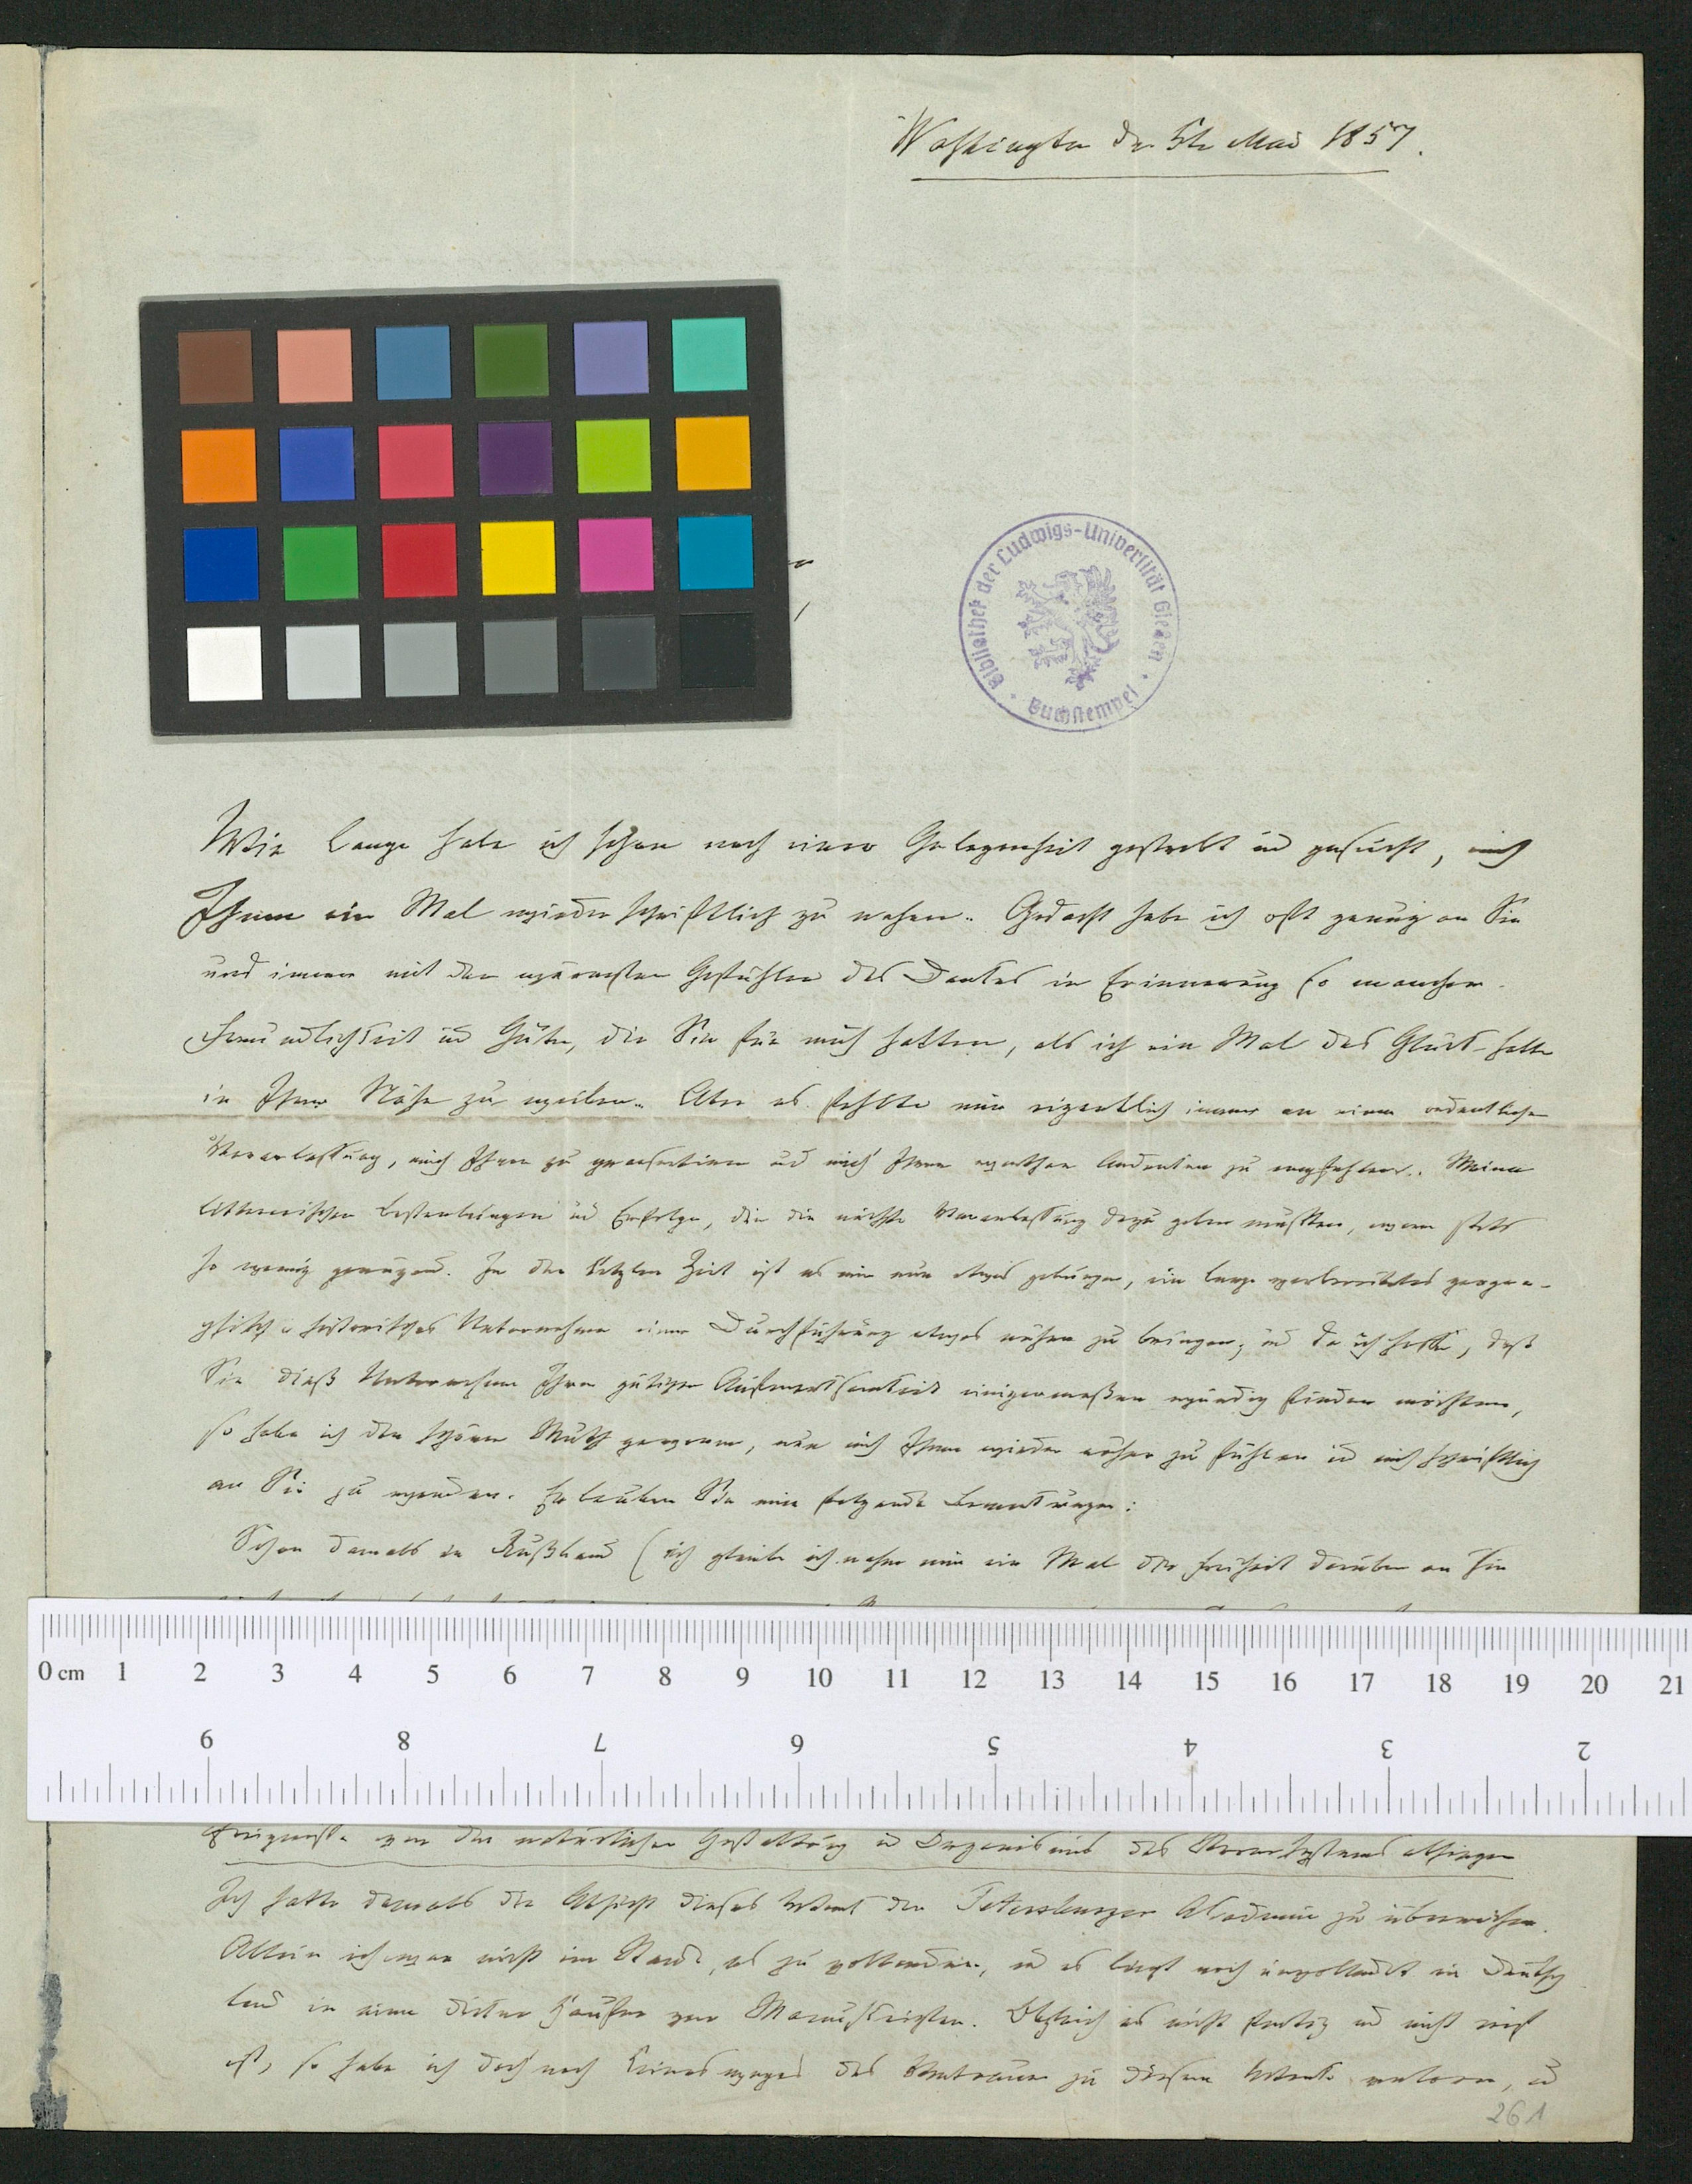 Washington den 5ten Mai 1857.
Bibliothek der Ludwigs-Universität Gießen
Buchstempel
Wie lange habe ich schon nach einer Gelegenheit gestrebt und gesucht, mich
Ihnen ein Mal wieder schriftlich zu nahen. Gedacht habe ich oft genug an Sie
und immer mit den wärmsten Gefühlen des Dankes in Erinnerung so mancher
Freundlichkeit und Güte, die Sie für mich hatten, als ich ein Mal das Glück hatte
in Ihrer Nähe zu weilen. Aber es fehlte mir eigentlich immer an einer ordentlichen
Veranlassung, mich Ihnen zu und mich Ihrem werthen Andenken zu empfehlen. Meine
litterarischen Bestrebungen und Erfolge, die die nächste Veranlassung dazu geben mußten, waren stets
so wenig genügend. In der letzten Zeit ist es mir nun etwas gelungen, ein lange vorbereitetes geogra-
phisch-historisches Unternehmen einer Durchführung etwas näher zu bringen; und da ich hoffe, daß
Sie dieß Unternehmen Ihrer gütigen Aufmerksamkeit einigermaßen würdig finden möchten,
so habe ich den schönen Muth gewonnen, nun mich Ihnen wieder näher zu fühlen und mich schriftlich
an Sie zu wenden. Erlauben Sie mir folgende Bemerkungen:
Schon damals in Rußland (ich glaube ich nahm mir ein Mal die Freiheit darüber an Sie
0 cm 1 2 3 4 5 6 7 8 9 10 11 12 13 14 15 16 17 18 19 20 21
9 8 7 6 5 4 3 2
Ereignisse von der natürlichen Gestaltung u Organismus des abhingen
Ich hatte damals die Absicht dieses Werk der Petersburger Akademie zu überreichen.
Allein ich war nicht im Stande, es zu vollenden, und es liegt noch unvollendet in Deutsch
land in einem dicken Haufen von Manuskripten. Obgleich es nicht fertig und nicht reif
ist, so habe ich doch noch keineswegs das Vertrauen zu diesem Werke verloren, und
261